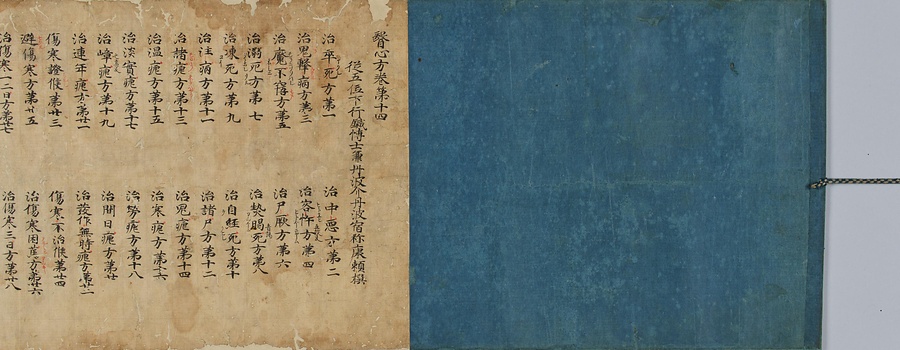 醫心方卷第十四
從五位下行鍼博士兼丹波介丹波宿祢康頼撰
治卒死方第一 治中惡方第二
治鬼擊病方第三 治客忤方第四
治魘不寤方第五 治尸厥方第六
治溺死方第七 治熱暍死方第八
治凍死方第九 治自經死方第十
治注病方第十一 治諸尸方第十二
治諸瘧方第十三 治鬼瘧方第十四
治温瘧方第十五 治寒瘧方第十六
治淡實瘧方第十七 治勞瘧方第十八
治瘴瘧方第十九 治間日瘧方第廿
治連年瘧方第廿一 治發作無時瘧方第廿二
傷寒證候第廿三 傷寒不治候第廿四
避傷寒方第廿五 治傷寒困篤方第廿六
治傷寒一二日方第廿七 治傷寒三日方第廿八